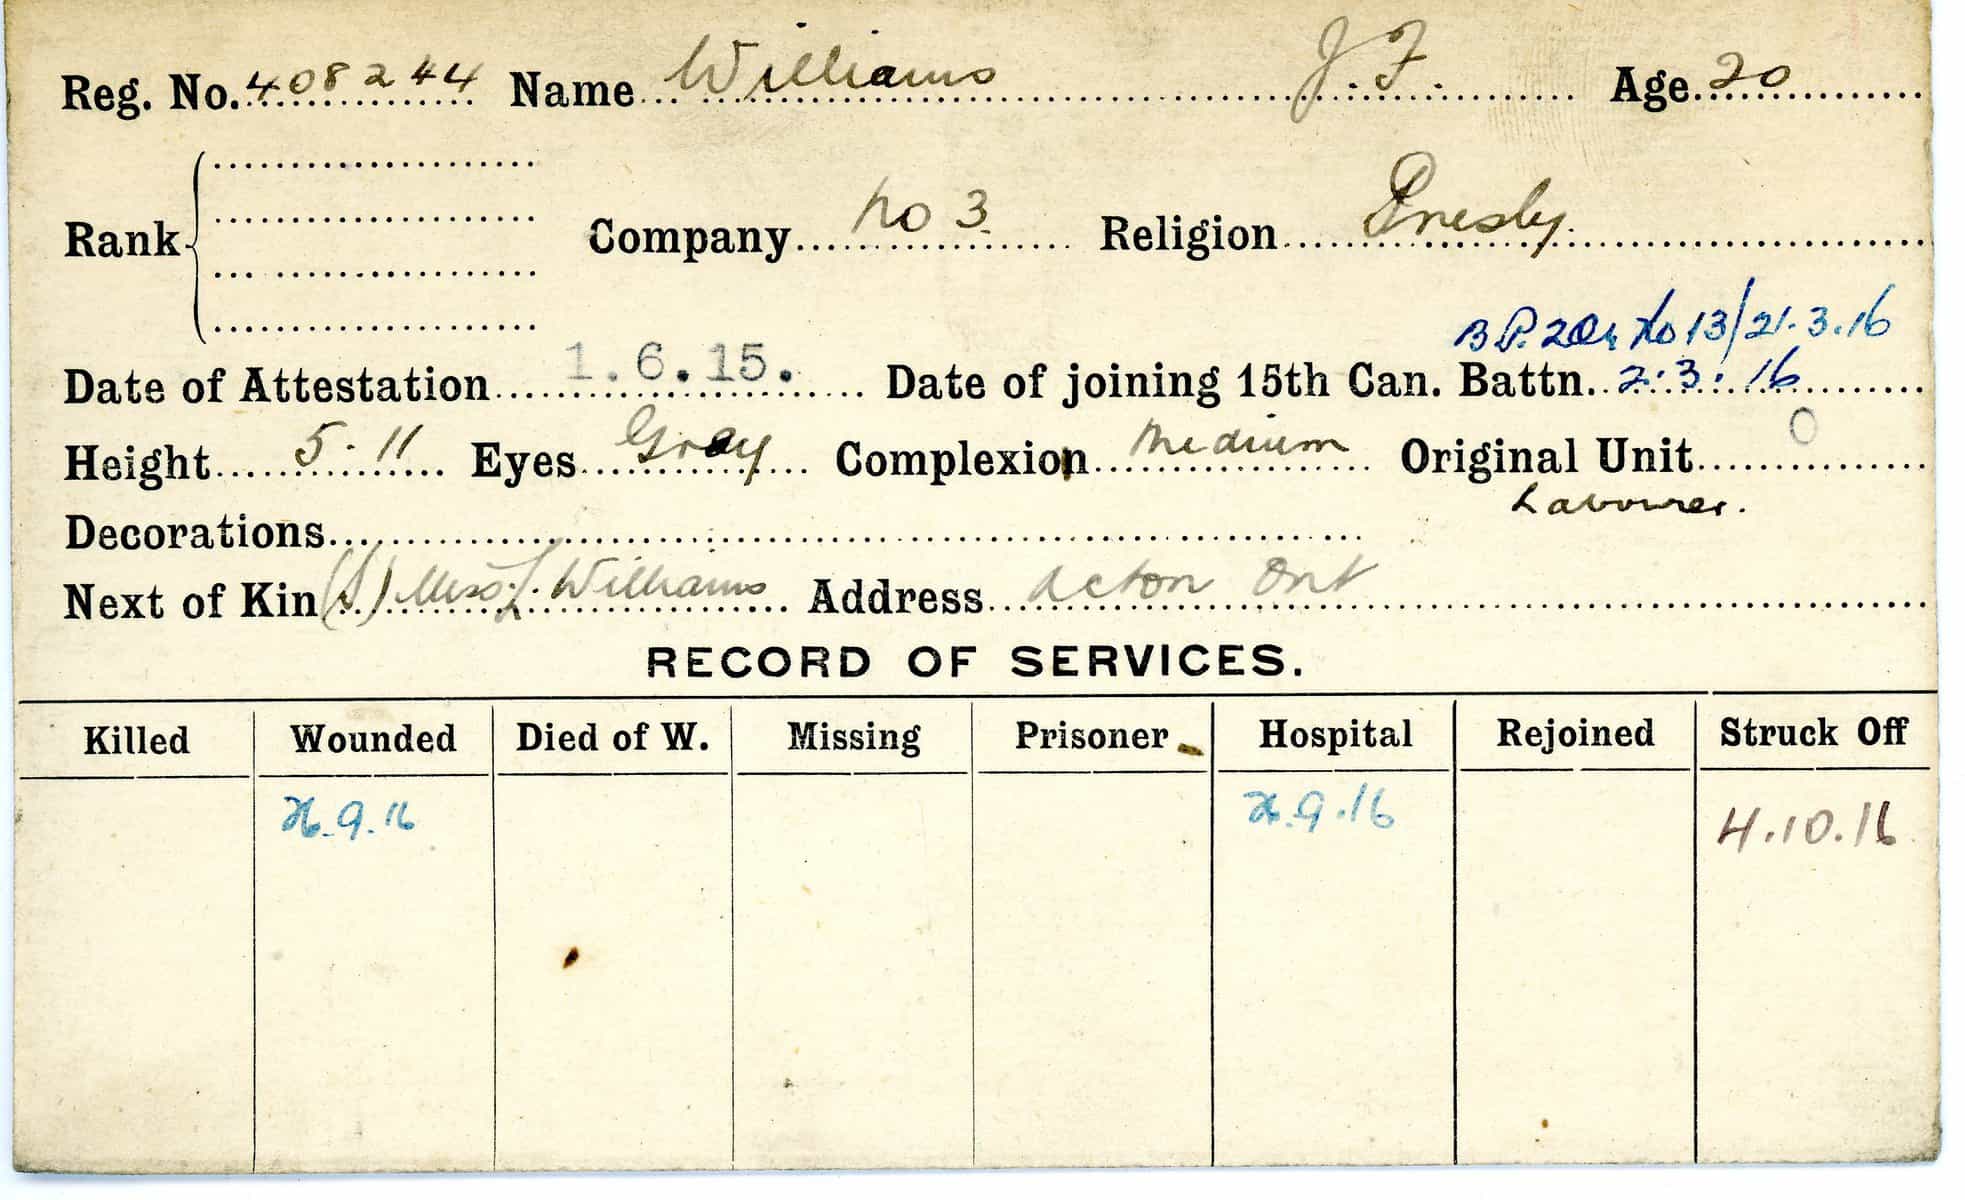 Reg. No. 408244 Name Williams J. F. Age 20
Rank Company No 3 Religion Presby.
No 13/21.3.16
Date of Attestation 1.6.15. Date of joining 15th Can. Battn. 2.3.16
Height 5.11 Eyes Gray Complexion Medium Original Unit 0
Labourer.
Decorations
Next of Kin (S) Miss L. Williams Address Acton Ont
RECORD OF SERVICES.
Killed Wounded Died of W. Missing Prisoner Hospital Rejoined Struck Off
26.9.16 26.9.16 4.10.16